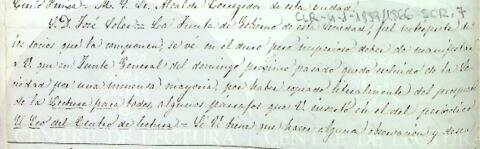 M. Y. Sr. Alcalde Corregidor de esta ciudad.
CLR-U-1-1859/1866-SOR, 7
S. D. José Soler = La Junta de Gobierno de esta Sociedad, fiel interprete de
los socios que la componen, se vé en el duro pero imperioso deber de manifestar
a V. que en Junta General del domingo proximo pasado quedó separado de la So-
ciedad por una inmensa mayoria, por haber copiado literalmente del prospecto
de la Lectura para todos, algunos parrafos que V. insertó en el del periodico
El Eco del Centro de lectura = Si V. tiene que hacer alguna observacion y desea
CENTRE DE LECTURA